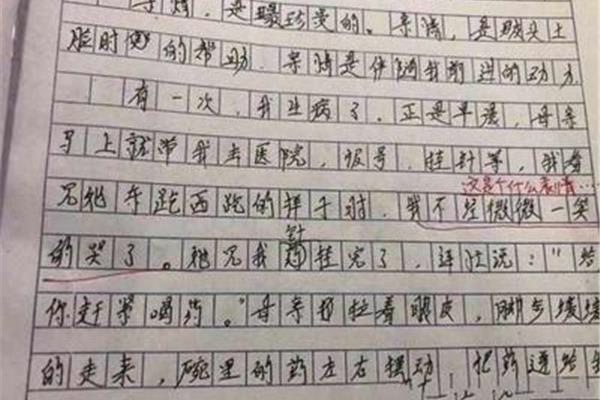 亲情,是最珍贵的。亲情,是跌头土
脸时的帮助,亲情是伴随我前进的动力
有一次,我生病了,正是早晨,母亲
马上就带我去医院,报号,挂针等,我看
见她东跑西跑的样子时,我不经微微一笑
这是个什么表情…
的哭了。她见我针挂完了,详壮说:"给
你赶紧喝药。"母亲拉着眼皮,脚步缓缓
的走来,碗里的药左右摆动,把药递给我